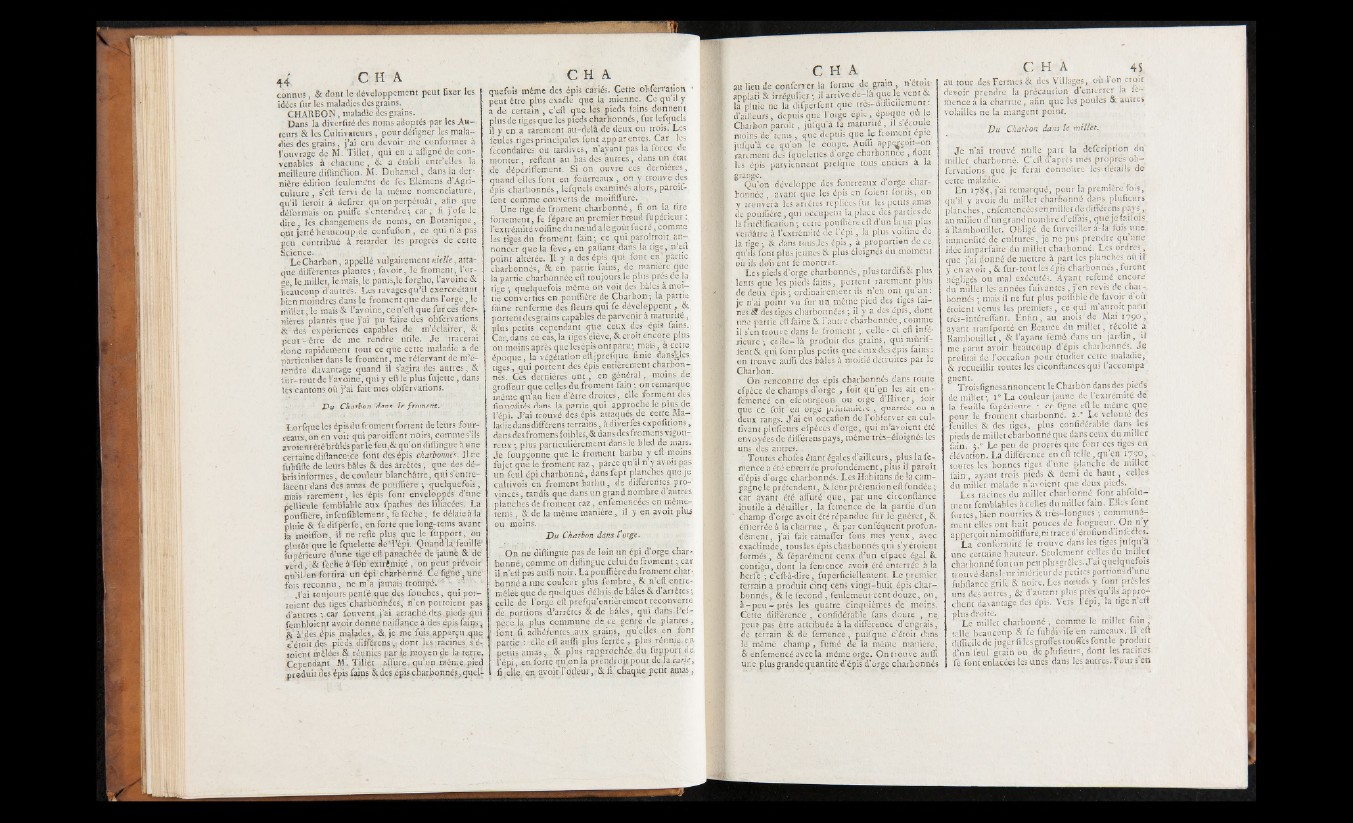 44 C H A
connus, & dont le développement peut fixer les
idées sur les maladies des grains.
CHARBON, maladie des grains.
Dans la diversité des noms adoptés par les Au-
teurs & les Cultivateurs, pour désigner les mala-
dies des grains, j'ai cru devoir me conformer à
l'ouvrage de M. Tillet, qui en a assigné de con-
venables à chacune, & a établi entr'elles la
meilleure distinction. M. Duhamel, dans la der-
nière édition seulement de ses Elémens d'Agri-
culture, s'est servi de la même nomenclature,
qu'il seroit à desirer qu'on perpétuât, afin que
désormais on puisse s'entendre; car, si j'ose le
dire, les changemens de noms, en Botanique,
ont jetté beaucoup de confusion, ce qui n'a pas
peu contribué à retarder les progrès de cette
Science.
Le Charbon, appellé vulgairement nielle, atta-
que différentes plantes; savoir, le froment, l'or-
ge, le millet, le maïs, le panis, le sorgho, l'avoine &
beaucoup d'autres. Les ravages qu'il exerce étant
bien moindres dans le froment que dans l'orge, le
millet, le maïs & l'avoine, ce n'est que sur ces der-
nières plantes que j'ai pu faire des observations
& des expériences capables de m'éclairer, &
peut-être de me rendre utile. Je tracerai
donc rapidement tout ce que cette maladie a de
particulier dans le froment, me réservant de m'é-
tendre davantage quand il s'agira des autres, &
sur-tout de l'avoine, qui y est le plus sujette, dans
les cantons où j'ai fait mes observations.
Du Charbon dans le froment.
Lorsque les épis du froment sortent de leurs four-
reaux, on en voit qui paroissent noirs, comme s'ils
avoient été brûlés par le feu, & qu'on distingue à une
certaine distance: ce sont des épis charbonnés. Il ne
subsiste de leurs bâles & des arrêtes, que des dé-
bris informes, de couleur blanchâtre, qui s'entre-
lacent dans des amas de poussière; quelquefois,
mais rarement, les épis sont enveloppés d'une
pellicule semblable aux spathes des liliacées. La
poussière, insensiblement, se sèche, se délaie à la
pluie & se disperse, en sorte que long-tems avant
la moisson, il ne reste plus que le support, ou
plutôt que le squelette de l'épi. Quand la feuille
supérieure d'une tige est panachée de jaune & de
verd, & sèche à son extrêmité, on peut prévoir
qu'il en sortira un épi charbonné. Ce signe, une
fois reconnu, ne m'a jamais trompé.
J'ai toujours pensé que des souches, qui por-
toient des tiges charbonnées, n'en portoient pas
d'autres: car souvent, j'ai arraché des pieds qui
sembloient avoir donné naissance à des épis sains,
& à des épis malades, & je me suis apperçu que
c'étoit des pieds différens, dont les racines s'é-
toient mêlées & réunies par le moyen de la terre.
Cependant M. Tillet assure, qu'un même pied
produit des épis sains & des épis charbonnés, quel-
C H A
quefois même des épis cariés. Cette observation
peut être plus exacte que la mienne. Ce qu'il y
a de certain, c'est que les pieds sains donnent
plus de tiges que les pieds charbonnés, sur lesquels
il y en a rarement au-delà de deux ou trois. Les
seules tiges principales sont apparentes. Car les
secondaires ou tardives, n'ayant pas la force de
monter, restent au bas des autres, dans un état
de dépérissement. Si on ouvre ces dernières,
quand elles sont en fourreaux, on y trouve des
épis charbonnés, lesquels examinés alors, parois-
sent comme couverts de moisissure.
Une tige de froment charbonné, si on la tire
fortement, se sépare au premier nœud supérieur:
l'extrêmité voisine du nœud a le goût sucré, comme
les tiges du froment sain; ce qui paroîtroit an-
noncer que la sève, en passant dans la tige, n'est
point altérée. Il y a des épis qui sont en partie
charbonnés, & en partie sains, de manière que
la partie charbonnée est toujours le plus près de la
tige; quelquefois même on voit des bâles à moi-
tié converties en poussière de Charbon; la partie
saine renferme des fleurs qui se développent, &
portent des grains capables de parvenir à maturité,
plus petits cependant que ceux des épis sains.
Car, dans ce cas, la tige s'élève, & croît encore plus
ou moins après que les épis ont paru; mais, à cette
époque, la végétation est presque finie dans les
tiges, qui portent des épis entièrement charbon-
nés. Ces dernières ont, en général, moins de
grosseur que celles du froment sain; on remarque
même qu'au lieu d'être droites, elle forment des
sinuosités dans la partie qui approche le plus de
l'épi. J'ai trouvé des épis attaqués de cette Ma-
ladie dans différens terrains, à diverses expositions,
dans des fromens foibles, & dans des fromens vigou-
reux; plus particulièrement dans le bled de mars.
Je soupçonne que le froment barbu y est moins
sujet que le froment raz, parce qu'il n'y avoit pas
un seul épi charbonné, dans sept planches que je
cultivois en froment barbu, de différentes pro-
vinces, tandis que dans un grand nombre d'autres
planches de froment raz, ensemencées en même-
tems, & de la même manière, il y en avoit plus
ou moins.
Du Charbon dans l'orge.
On ne distingue pas de loin un épi d'orge char-
bonné, comme on distingue celui du froment; car
il n'est pas aussi noir. La poussière du froment char-
bonné a une couleur plus sombre, & n'est entre-
mêlée que de quelques débris de bâles & d'arrêtes;
celle de l'orge est presqu'entièrement recouverte
de portions d'arrêtes & de bâles, qui dans l'es-
pèce la plus commune de ce genre de plantes,
sont si adhérentes aux grains, qu'elles en font
partie: elle est aussi plus serrée, plus réunie en
petits amas, & plus rapprochée du support de
l'épi, en sorte qu'on la prendroit pour de la carie,
si elle en avoit l'odeur, & si chaque petit amas,
C H A
au lieu de conserver la forme de grain, n'étoit
applati & irrégulier; il arrive de-là que le vent &
la pluie ne la dispersent que très-difficilement:
d'ailleurs, depuis que l'orge épie, époque où le
Charbon paroît, jusqu'à sa maturité, il s'écoule
moins de tems, que depuis que le froment épie
jusqu'à ce qu'on le coupe. Aussi apperçoit-on
rarement des squelettes d'orge charbonnée, dont
les épis parviennent presque tous entiers à la
grange.
Qu'on développe des fourreaux d'orge char-
bonnée, avant que les épis en soient sortis, on
y trouvera les arrêtes repliées sur les petits amas
de poussière, qui occupent la place des parties de
la fructification; cette poussière est d'un brun plus
verdâtre à l'extrêmité de l'épi, la plus voisine de
la tige; & dans tous les épis, à proportion de ce
qu'ils sont plus jeunes & plus éloignés du moment
où ils doivent se montrer.
Les pieds d'orge charbonnés, plus tardifs & plus
lents que les pieds sains, portent rarement plus
de deux épis; ordinairement ils n'en ont qu'un:
je n'ai point vu sur un même pied des tiges sai-
nes & des tiges charbonnées; il y a des épis, dont
une partie est saine & l'autre charbonnée, comme
il s'en trouve dans le froment; celle-ci est infé-
rieure; celle-là produit des grains, qui mûris-
sent & qui sont plus petits que ceux des épis sains:
on trouve aussi des bâles à moitié détruites par le
Charbon.
On rencontre des épis charbonnés dans toute
espèce de champs d'orge, soit qu'on les ait en-
semencé en escourgeon ou orge d'Hiver, soit
que ce soit en orge printanière, quarrée ou à
deux rangs. J'ai eu occasion de l'observer en cul-
tivant plusieurs espèces d'orge, qui m'avoient été
envoyées de différens pays, même très-éloignés les
uns des autres.
Toutes choses étant égales d'ailleurs, plus la se-
mence a été enterrée profondément, plus il paroît
d'épis d'orge charbonnés. Les Habitans de la cam-
pagne le prétendent, & leur prétention est fondée;
car ayant été assuré que, par une circonstance
inutile à détailler, la semence de la partie d'un
champ d'orge avoit été répandue sur le guéret, &
enterrée à la charrue, & par conséquent profon-
dément, j'ai fait ramasser sous mes yeux, avec
exactitude, tous les épis charbonnés qui s'y étoient
formés, & séparément ceux d'un espace égal &
contigu, dont la semence avoit été enterrée à la
herse; c'est-à-dire, superficiellement. Le premier
terrain a produit cinq cens vingt-huit épis char-
bonnés, & le second, seulement cent douze, ou,
à-peu-près les quatre cinquièmes de moins.
Cette différence, considérable sans doute, ne
peut pas être attribuée à la différence d'engrais,
de terrain & de semence, puisque c'étoit dans
le même champ, fumé de la même manière,
& ensemencé avec la même orge. On trouve aussi
une plus grande quantité d'épis d'orge charbonnés
C H A 45
au tour des Fermes & des Villages, où l'on croit
devoir prendre la précaution d'enterrer la se-
mence à la charrue, afin que les poules & autres
volailles ne la mangent point.
Du Charbon dans le millet.
Je n'ai trouvé nulle part la description du
millet charbonné. C'est d'après mes propres ob-
servations que je ferai connoître les détails de
cette maladie.
En 1785, j'ai remarqué, pour la première fois,
qu'il y avoit du millet charbonné dans plusieurs
planches, ensemencées en millet de différens pays,
au milieu d'un grand nombre d'essais, que je faisois
à Rambouillet. Obligé de surveiller à la fois une
immensité de cultures, je ne pus prendre qu'une
idée imparfaite du millet charbonné. Les ordres,
que j'ai donné de mettre à part les planches où il
y en avoit, & sur-tout les épis charbonnés, furent
négligés ou mal exécutés. Ayant ressemé encore
du millet les années suivantes, j'en revis de char-
bonnés; mais il ne fut plus possible de savoir d'où
étoient venus les premiers, ce qui m'auroit paru
très-intéressant. Enfin, au mois de Mai 1790,
ayant transporté en Beauce du millet, récolté à
Rambouillet, & l'ayant semé dans un jardin, il
me parut avoir beaucoup d'épis charbonnés. Je
profitai de l'occasion pour étudier cette maladie,
& recueillir toutes les circonstances qui l'accompa-
gnent.
Trois signes annoncent le Charbon dans des pieds
de millet; 1.° La couleur jaune de l'extrémité de
la feuille supérieure: ce signe est le même que
pour le froment charbonné. 2.° Le velouté des
feuilles & des tiges, plus considérable dans les
pieds de millet charbonné que dans ceux du millet
sain. 3.° Le peu de progrès que font ces tiges en
élévation. La différence en est telle, qu'en 1790,
toutes les bonnes tiges d'une planche de millet
sain, ayant trois pieds & demi de haut, celles
du millet malade n'avoient que deux pieds.
Les racines du millet charbonné sont absolu-
ment semblables à celles du millet sain. Elles sont
fortes, bien nourries & très-longues; communé-
ment elles ont huit pouces de longueur. On n'y
apperçoit ni moisissure, ni trace d'érosion d'insectes.
La conformité se trouve dans les tiges jusqu'à
une certaine hauteur. Seulement celles du millet
charbonné sont un peu plus grêles. J'ai quelquefois
trouvé dans leur intérieur de petites portions d'une
substance grise & noire. Les nœuds y sont près les
uns des autres, & d'autant plus près qu'ils appro-
chent davantage des épis. Vers l'épi, la tige n'est
plus droite.
Le millet charbonné, comme le millet sain,
talle beaucoup & se subdivise en rameaux. Il est
difficile de juger si les grosses touffes sont le produit
d'un seul grain ou de plusieurs, dont les racines
se sont enlacées les unes dans les autres. Pour s'en